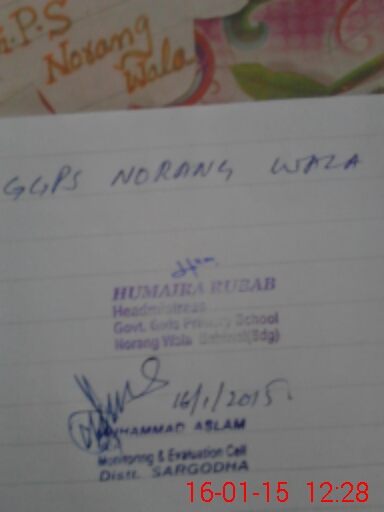 G.P.S
Norang
Wala
GGPS NORANG WALA
HUMAIRA RUBAB
Headmistress
Govt. Girls Primary School
Norang Wala Sahiwal(Sdg)
16/1/2015
MUHAMMAD ASLAM
Monitoring & Evaluation Cell
Distt. SARGODHA
16-01-15 12:28